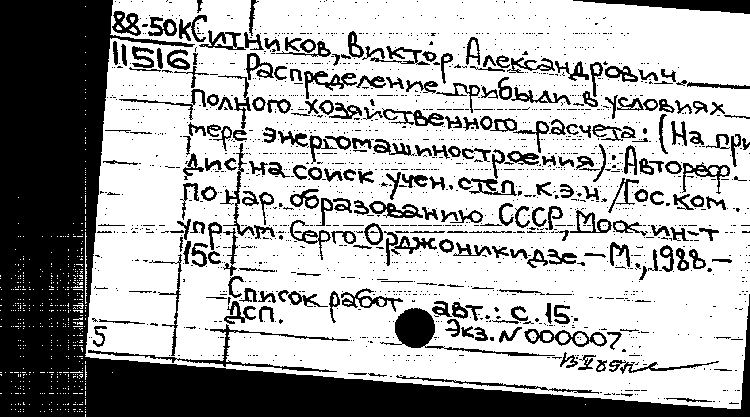 88-50К Ситников, Виктор Александрович.
11516 Распределение прибыли в условиях
полного хозяйственного расчета: (На при
мере энергомашиностроения): Автореф.
дис. на соиск. учен. степ. к.э.н. /Гос. ком.
по нар. образованию СССР, Моск. ин-т
упр. им. Серго Орджоникидзе. – М., 1988. –
15с.
Список работ авт.: с. 15.
ДСП. Экз. N 000007.
5